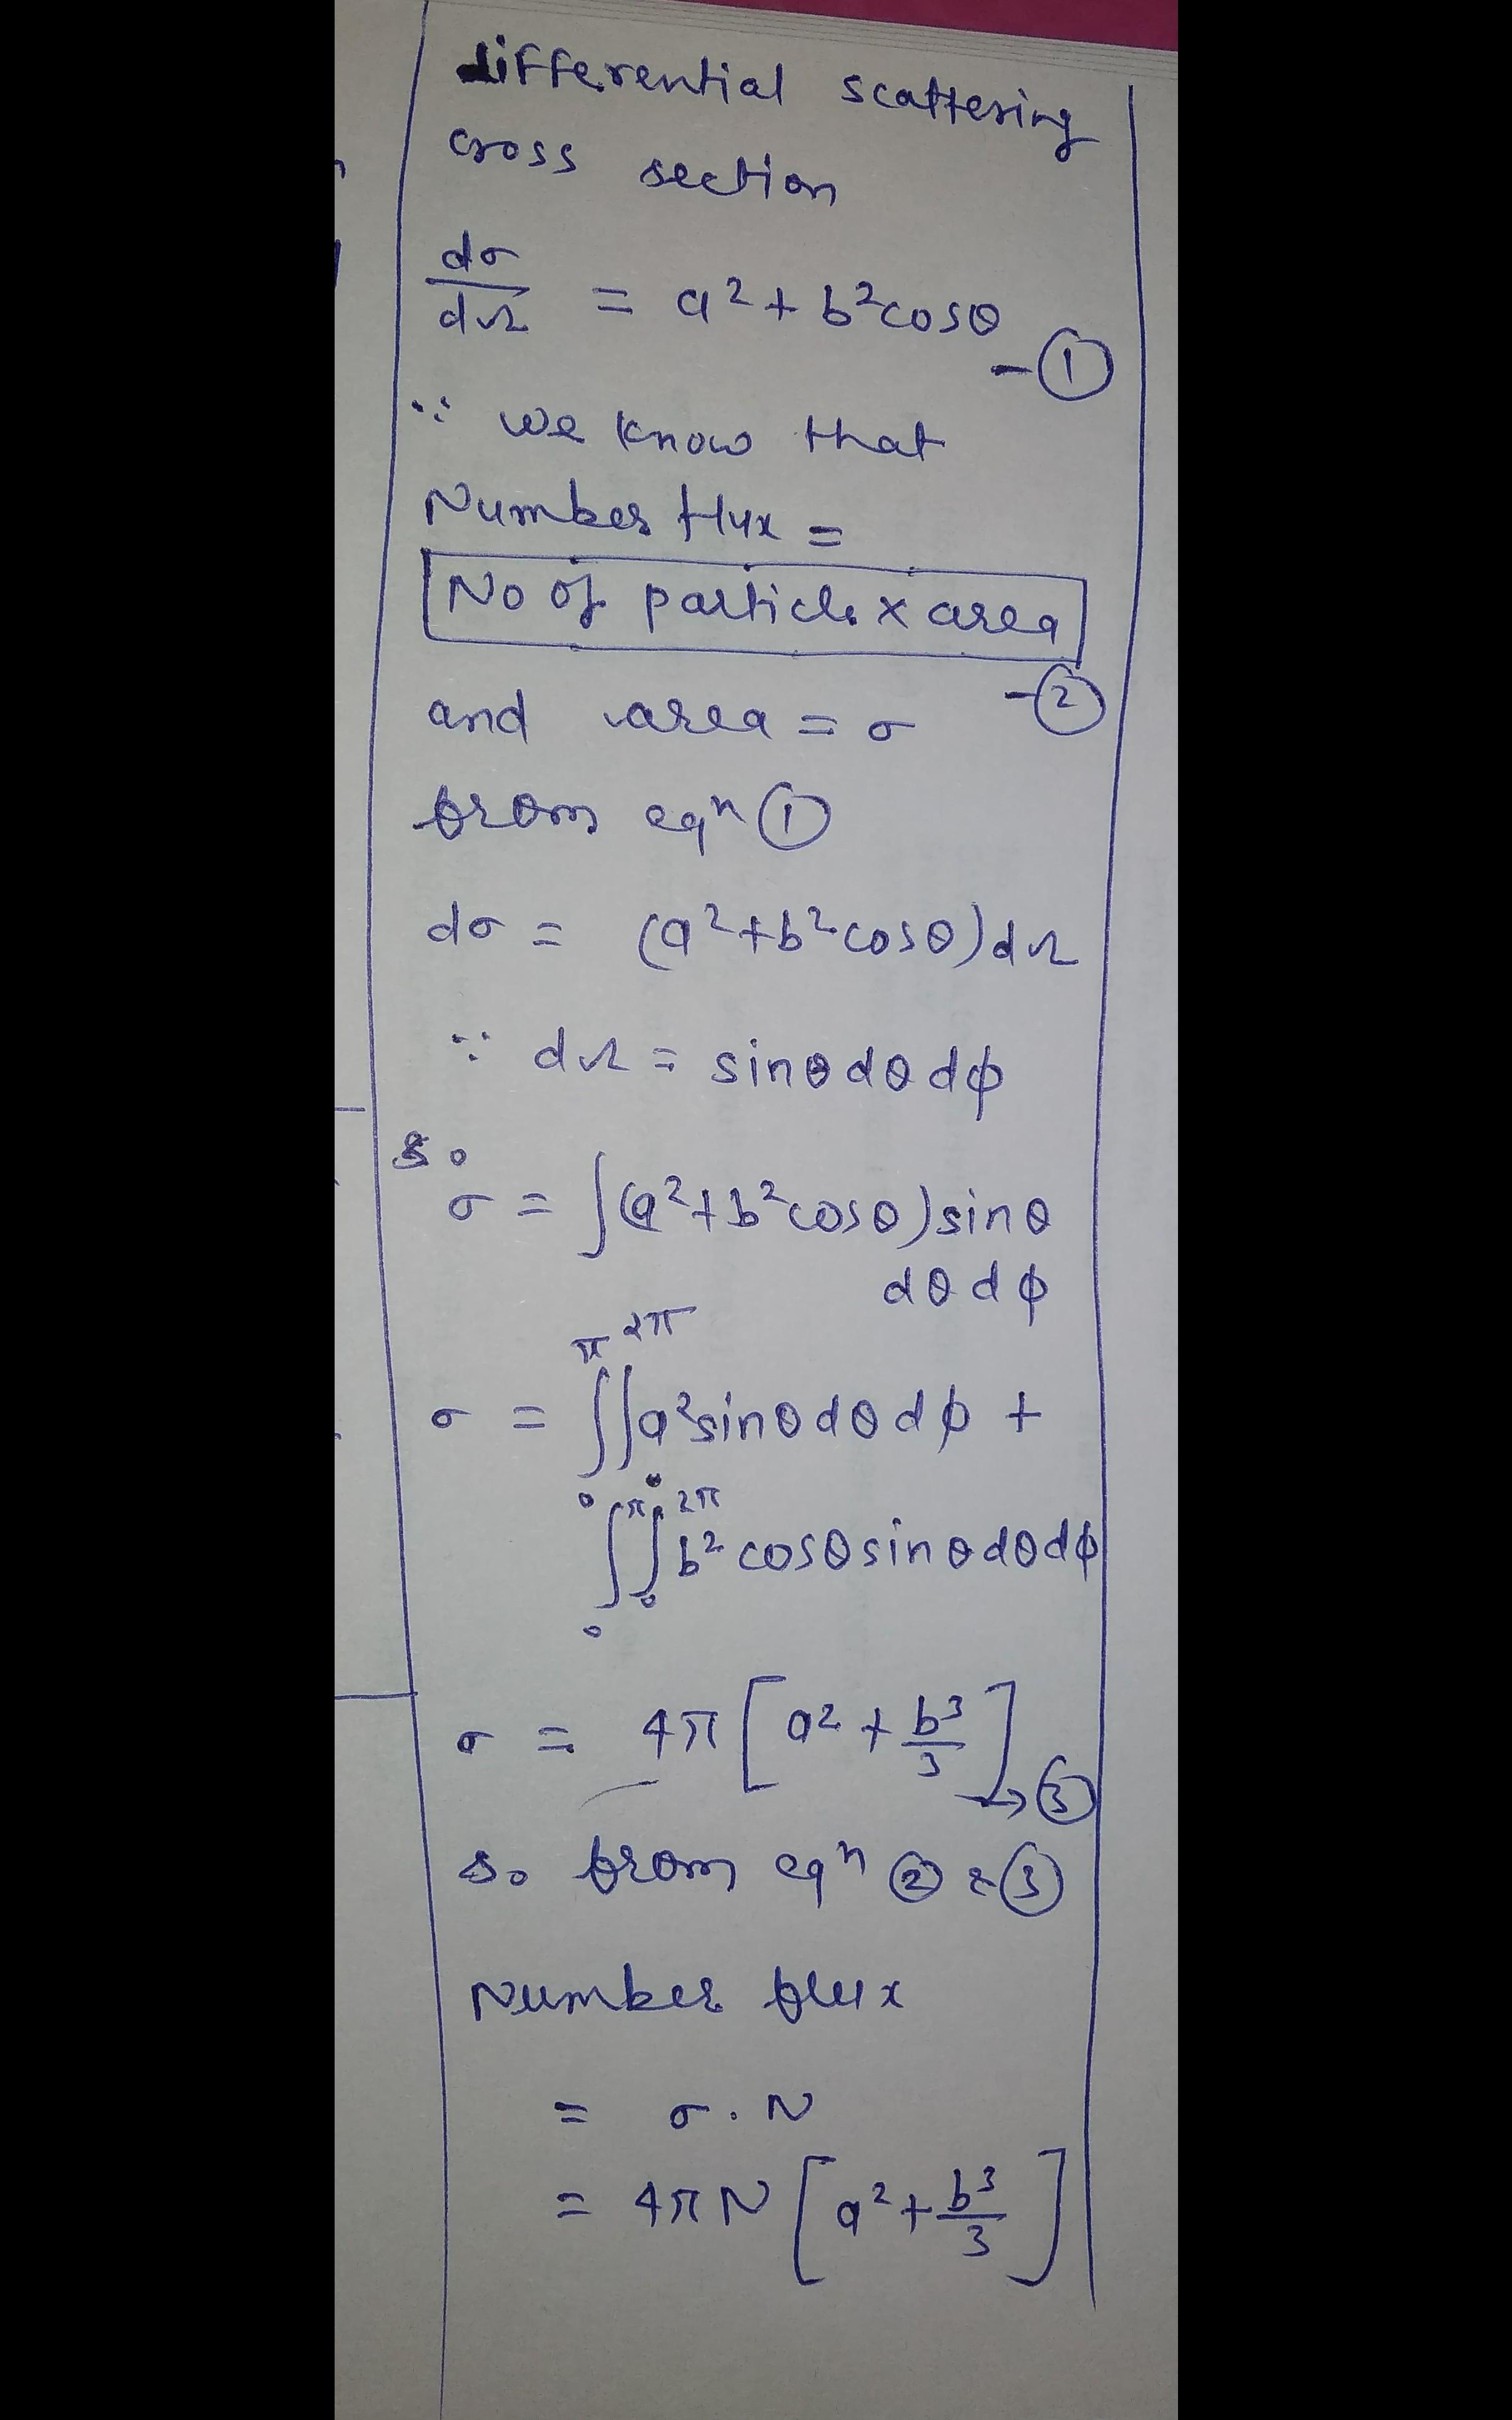 differential scattering
cross section
dσ/dΩ = a² + b²cosθ -①
∵ we know that
Number flux =
No of particle x area -②
and area = σ
from eqⁿ ①
dσ = (a²+b²cosθ)dΩ
∵ dΩ = sinθdθdϕ
So
σ = ∫(a²+b²cosθ)sinθ
dθdϕ
σ = ∫₀^π ∫₀^2π a²sinθdθdϕ +
∫₀^π ∫₀^2π b²cosθsinθdθdϕ
σ = 4π[a² + b³/3] → ③
So from eqⁿ ② & ③
Number flux
= σ . N
= 4πN[a² + b³/3]